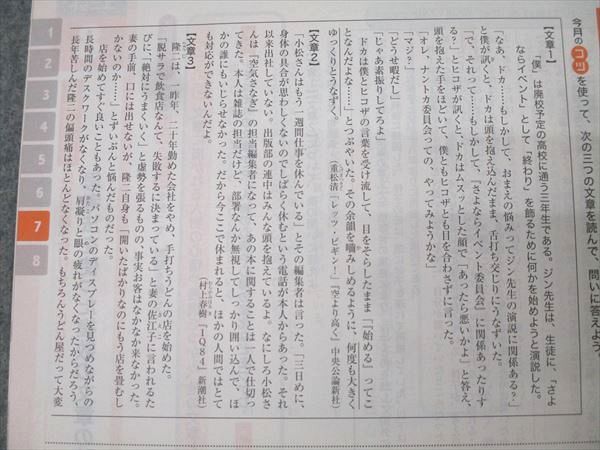 今月のコツを使って、次の三つの文章を読んで、問いに答えよう。
【文章1】
「僕」は廃校予定の高校に通う三年生である。ジン先生は、生徒に、「さよ
ならイベント」として「終わり」を飾るために何かを始めようと演説した。
「なあ、ドカ……もしかして、おまえの悩みってジン先生の演説に関係ある?」
と僕が訊くと、ドカは頭を抱え込んだまま、舌打ち交じりにうなずいた。
「で、それって……もしかして、『さよならイベント委員会』に関係あったりす
る?」とヒコザが訊くと、ドカはムスッとした顔で「あったら悪いかよ」と答え、
頭を抱えた手をほどいて、僕ともヒコザとも目を合わさずに言った。
「オレ、ナントカ委員会っての、やってみようかな」
「マジ?」
「どうせ暇だし」
「じゃあ素振りしてろよ」
ドカは僕とヒコザの言葉を受け流して、目をそらしたまま「『始める』ってこ
となんだよな……」とつぶやいた。その余韻を嚙みしめるように、何度も大きく
ゆっくりとうなずく。
(重松清「レッツ・ビギン!」『空より高く』中央公論新社)
【文章2】
「小松さんはもう一週間仕事を休んでいる」とその編集者は言った。「三日めに、
身体の具合が思わしくないのでしばらく休むという電話が本人からあった。それ
以来出社していない。出版部の連中はみんな頭を抱えているよ。なにしろ小松さ
んは『空気さなぎ』の担当編集者になって、あの本に関することは一人で仕切っ
てきた。本人は雑誌の担当だけど、部署なんか無視してしっかり囲い込んで、ほ
かの誰にもいじらせなかった。だから今ここで休まれると、ほかの人間ではとて
も対応ができないんだよ。
(村上春樹『1Q84』新潮社)
【文章3】
隆二は、一昨年、二十年勤めた会社をやめ、手打ちうどんの店を始めた。
「脱サラで飲食店なんて、失敗するに決まっている」と妻の佐江子に言われるた
びに、「絶対にうまくいく」と虚勢を張るものの、事実お客はなかなか来なかった。
妻の手前、口には出せないが、隆二自身も「開いたばかりなのにもう店を畳むし
かないのか……」とずいぶんと悩んだものだった。
店を始めてすぐ良いこともあった。パソコンのディスプレーを見つめながらの
長時間のデスクワークがなくなり、肩凝りと眼の疲れがなくなったからだろう、
長年苦しんだ隆二の偏頭痛はほとんどなくなった。もちろんうどん屋だって大変
1
2
3
4
5
6
7
8